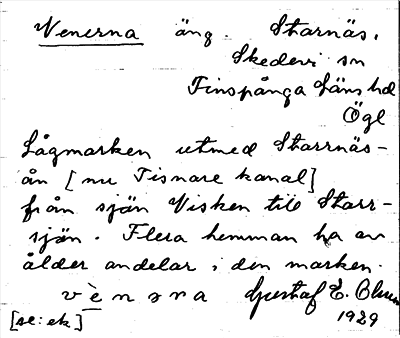 Venerna äng. Starnäs,
Skedevi sn
Finspånga Läns hd
Ögl
Lågmarken utmed Starrnäs-
ån [nu Tisnare kanal]
från sjön Visken till Starr-
sjön. Flera hemman ha av
ålder andelar i den marken.
vènərna Gustaf E.
[se: ek] 1929